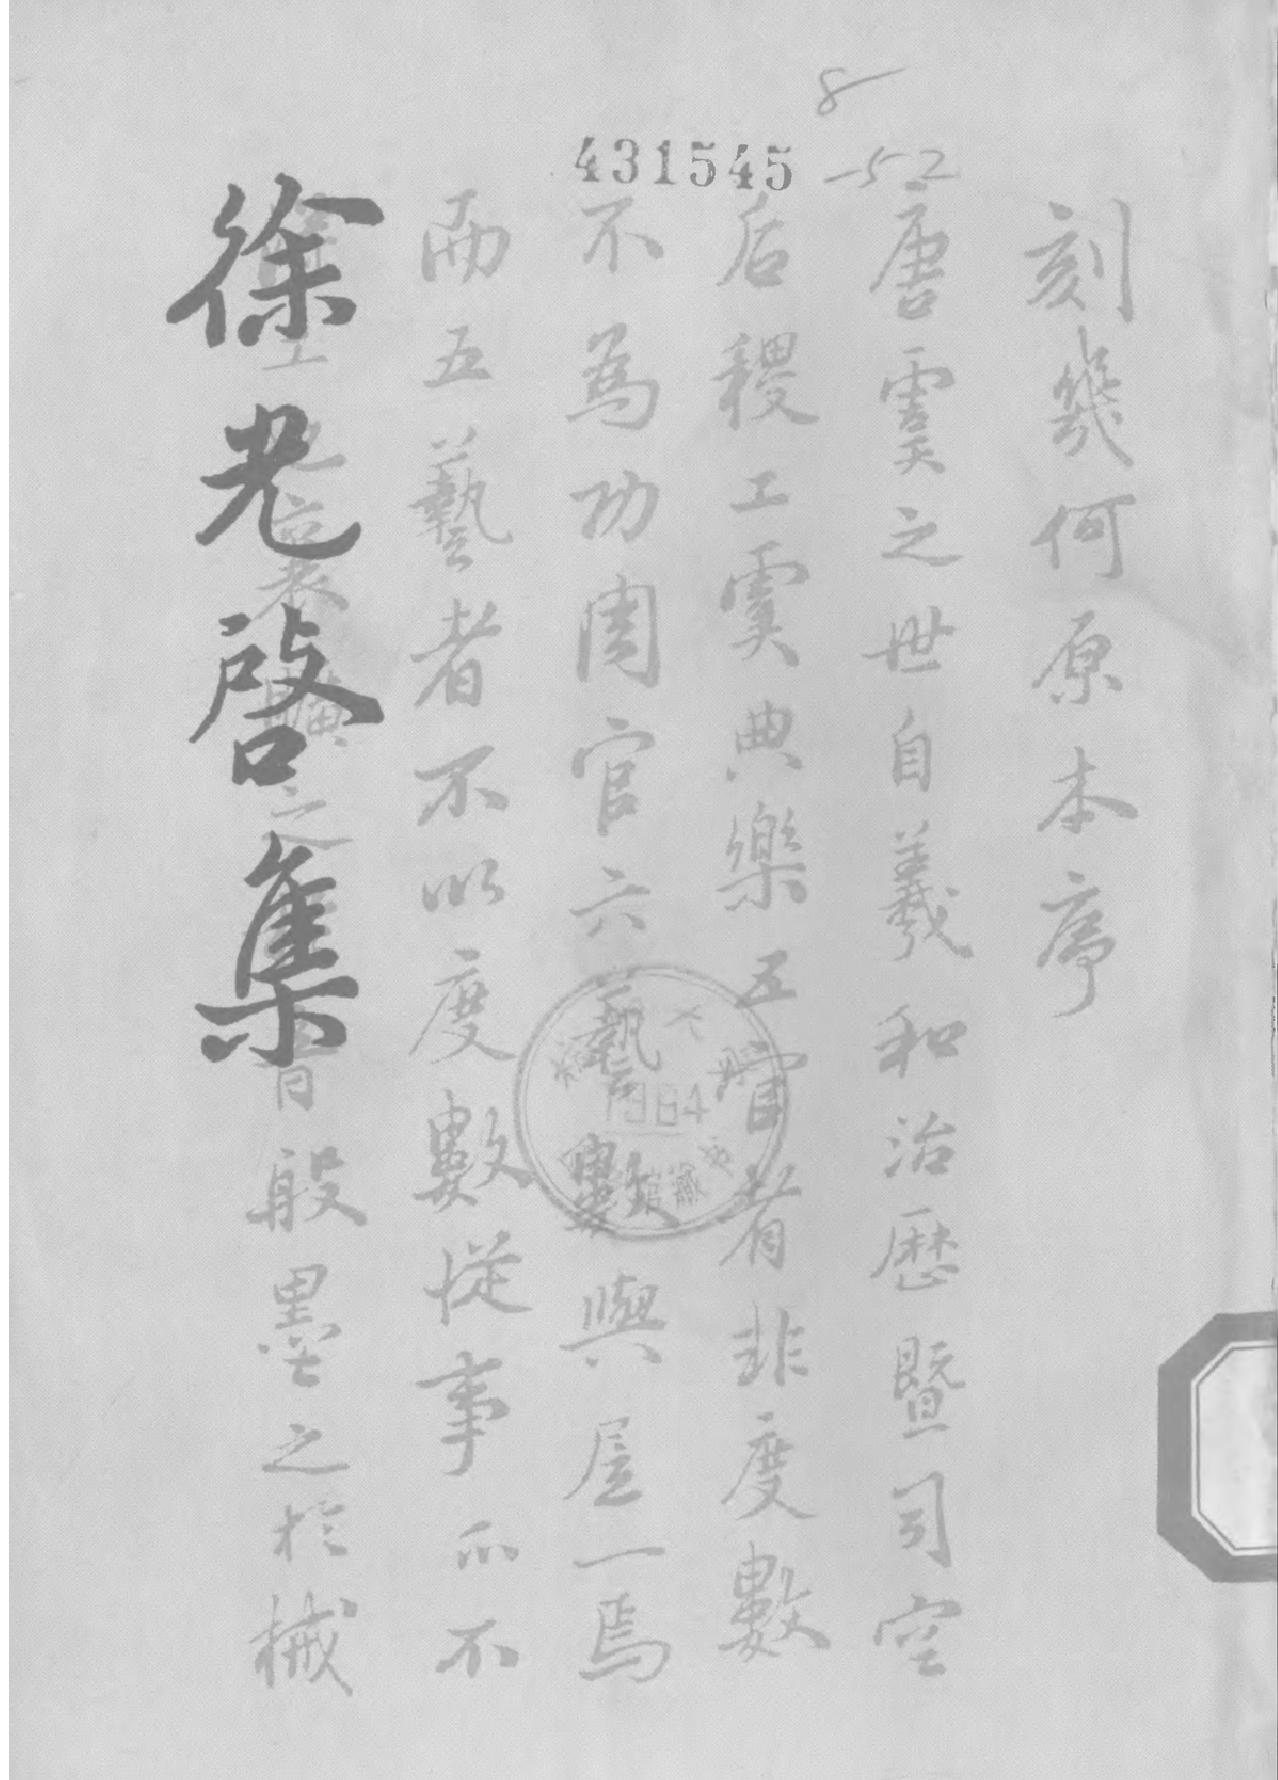 8
-52
431545
刻幾何原本序
唐虞之世自羲和治厯暨司空
后稷工虞典樂五官者非度數
不為功周官六藝數與居一焉
而五藝者不以度數從事亦不
工也 襄曠之 音般墨之於械
徐光啓集
1964
館藏